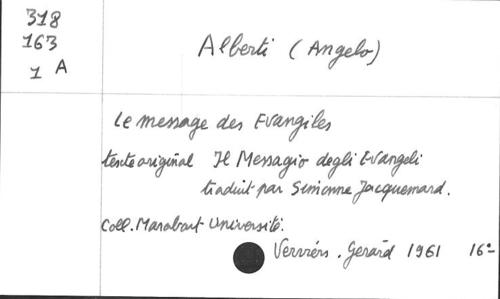 318
163
1 A
Alberti (Angelo)
Le message des Evangiles
texte original Il Messagio degli Evangeli
traduit par Simonne Jacquemard.
Coll. Marabout Université.
Verviers. Gerard 1961 16°